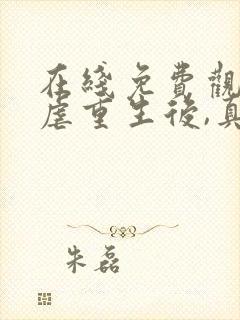 在綫免費觀
虐重生後,真
朱磊